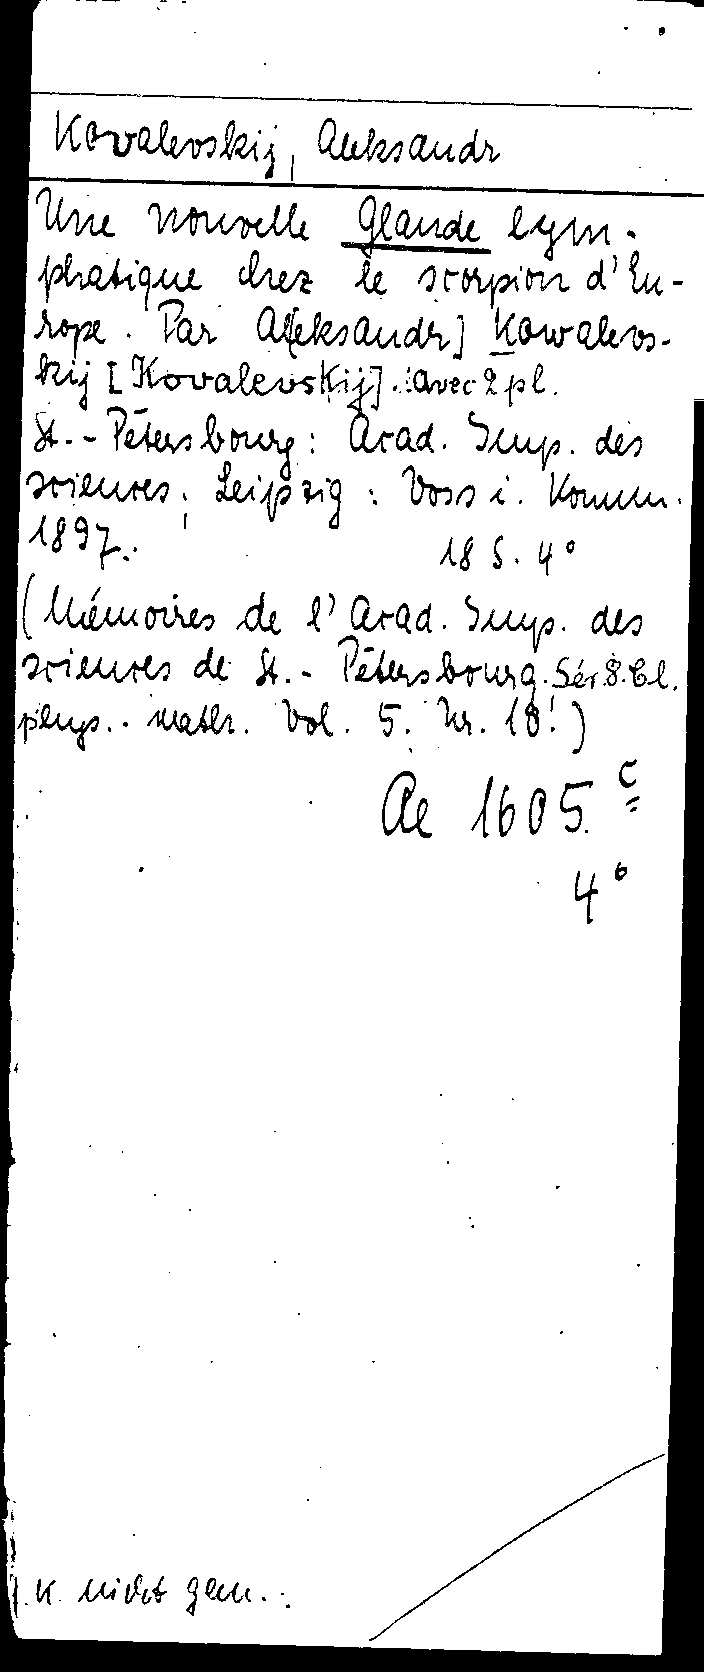 Kovalevskij, Aleksandr
Une nouvelle Glande lym-
phatique chez le scorpion d'Eu-
rope. Par A[leksandr] Kowalevs-
kij [Kovalevskij]. avec 2 pl.
St.-Pétersbourg: Acad. Imp. des
sciences; Leipzig: Voss i. Komm.
1897. 18 S. 4°
(Mémoires de l'Acad. Imp. des
sciences de St.-Pétersbourg. Sér. 8. Cl.
phys.-math. Vol. 5. Nr. 10!)
Ae 1605 c
4°
K. nicht gem.